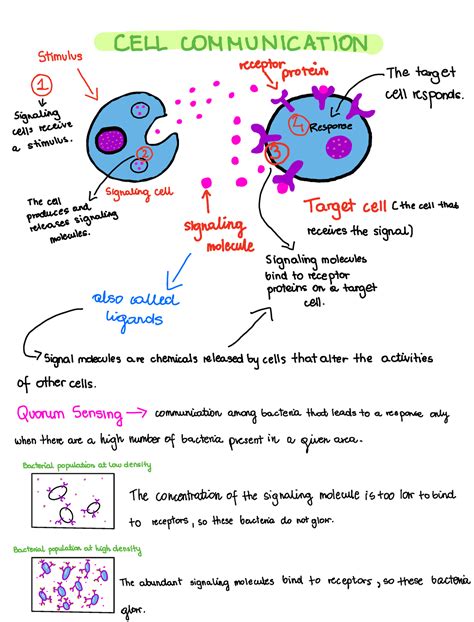 CELL COMMUNICATION
Stimulus
1
Signaling
cells receive
a stimulus.
2
Signaling cell
The cell
produces and
releases signaling
molecules.
receptor
protein
4
Response
3
The target
cell responds.
signaling
molecule
Target cell (the cell that
receives the signal)
Signaling molecules
bind to receptor
proteins on a target
cell.
also called
ligands
Signal molecules are chemicals released by cells that alter the activities
of other cells.
Quorum Sensing → communication among bacteria that leads to a response only
when there are a high number of bacteria present in a given area.
Bacterial population at low density
The concentration of the signaling molecule is too low to bind
to receptors, so these bacteria do not glow.
Bacterial population at high density
The abundant signaling molecules bind to receptors, so these bacteria
glow.